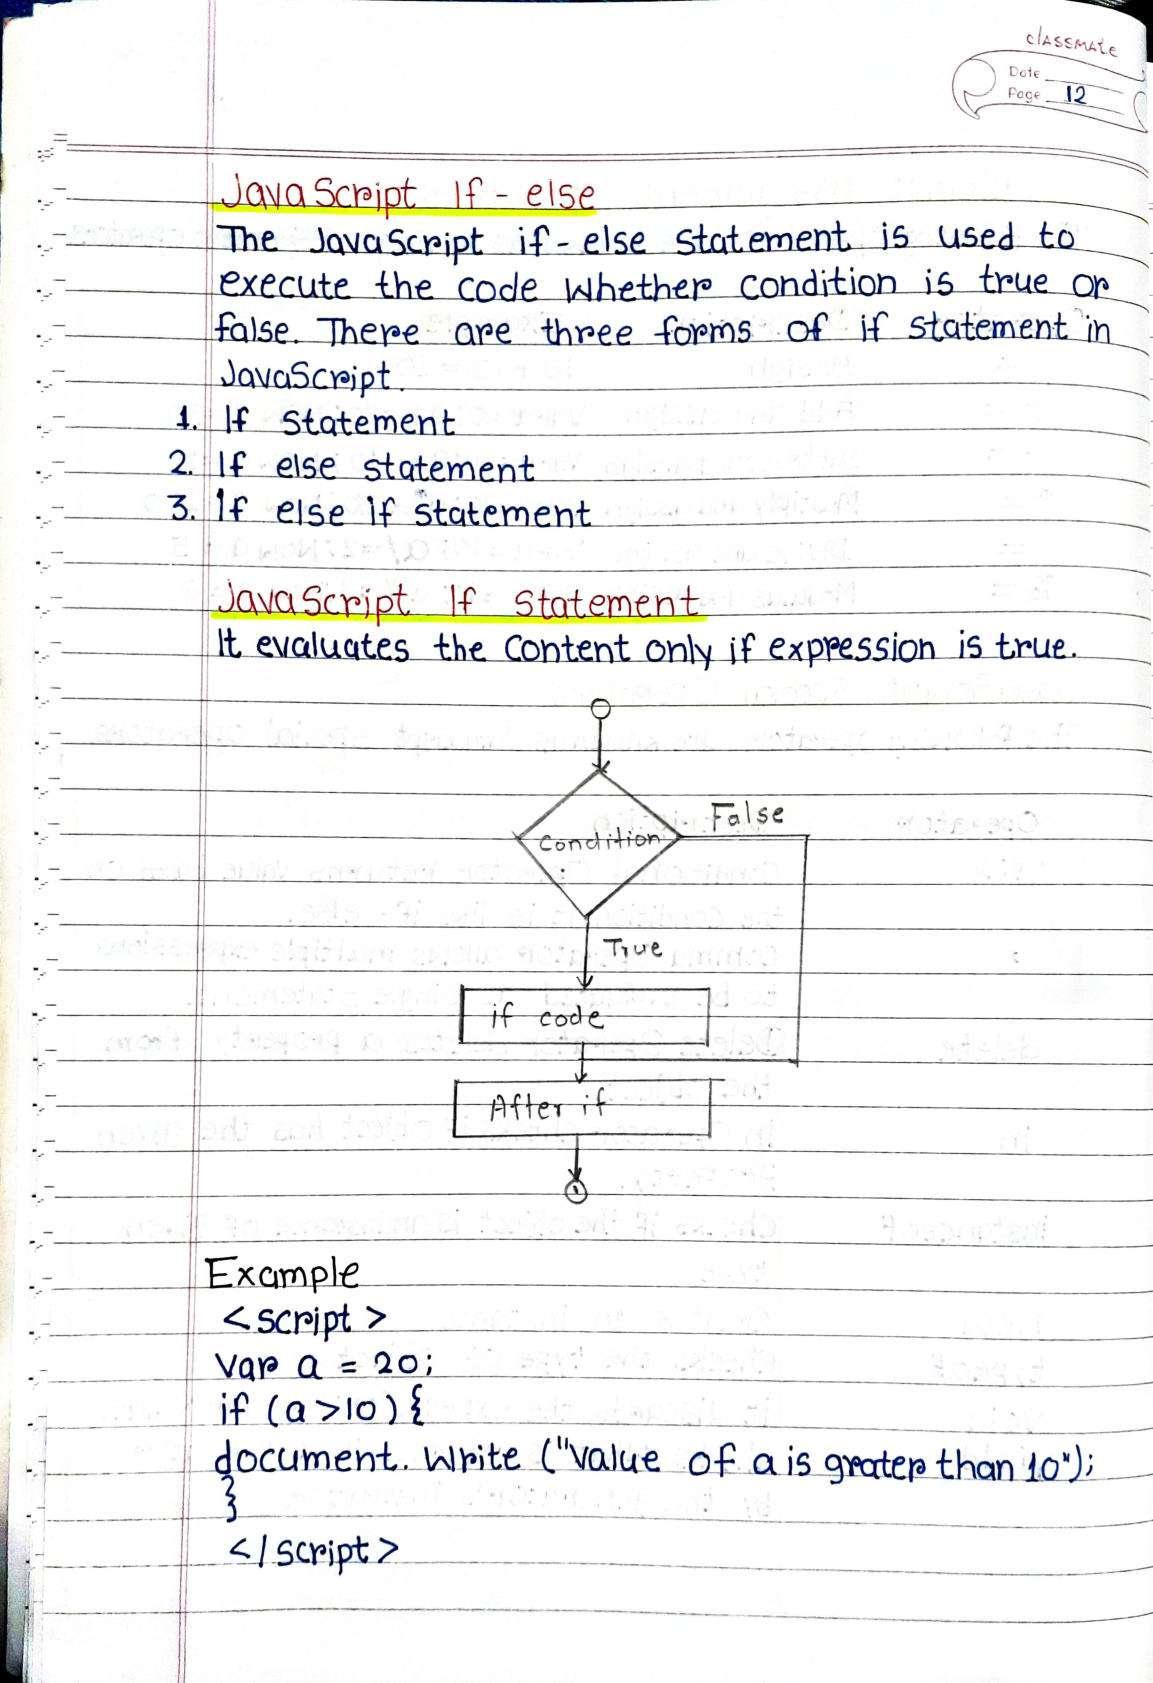 classmate
Date
Page 12
JavaScript If - else
The JavaScript if - else statement is used to
execute the code whether condition is true or
false. There are three forms of if statement in
JavaScript.
1. If Statement
2. If else statement
3. If else if statement
JavaScript If Statement
It evaluates the content only if expression is true.
False
condition
True
if code
After if
Example
<script>
var a = 20;
if (a>10) {
document. write ("value of a is grater than 10");
}
</script>